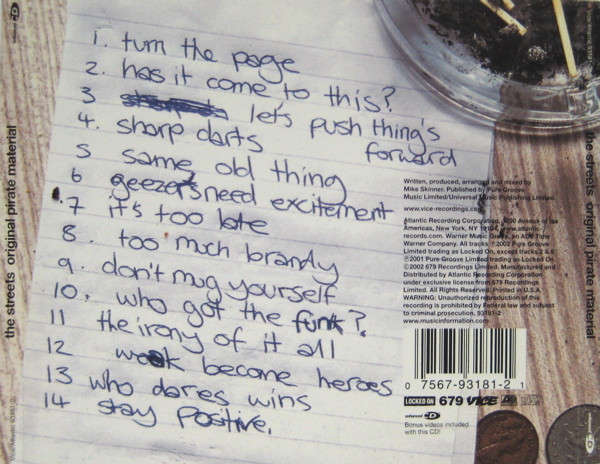 1. turn the page
2. has it come to this?
3 let's push thing's
forward
4. sharp darts
5 same old thing
6 geezers need excitement
7 it's too late
8. too much brandy
9. don't mug yourself
10. who got the funk?
11 the irony of it all
12 weak become heroes
13 who dares wins
14 stay positive.
the streets original pirate material
the streets original pirate material
Written, produced, arranged and mixed by
Mike Skinner. Published by Pure Groove
Music Limited/Universal Music Publishing Limited.
www.vice-recordings.com
Atlantic Recording Corporation, 1290 Avenue of the
Americas, New York, NY 10104. www.atlantic-
records.com. Warner Music Group, an AOL Time
Warner Company. All tracks ℗2002 Pure Groove
Limited trading as Locked On, except tracks 2 & 6
℗2001 Pure Groove Limited trading as Locked On
©2002 679 Recordings Limited. Manufactured and
Distributed by Atlantic Recording Corporation
under exclusive license from 679 Recordings
Limited. All Rights Reserved. Printed in U.S.A.
WARNING: Unauthorized reproduction of this
recording is prohibited by Federal law and subject
to criminal prosecution. 93181-2
www.musicinformation.com
0 07567-93181-2 1
LOCKED ON 679 VICE
enhanced CD
Bonus videos included
with this CD!